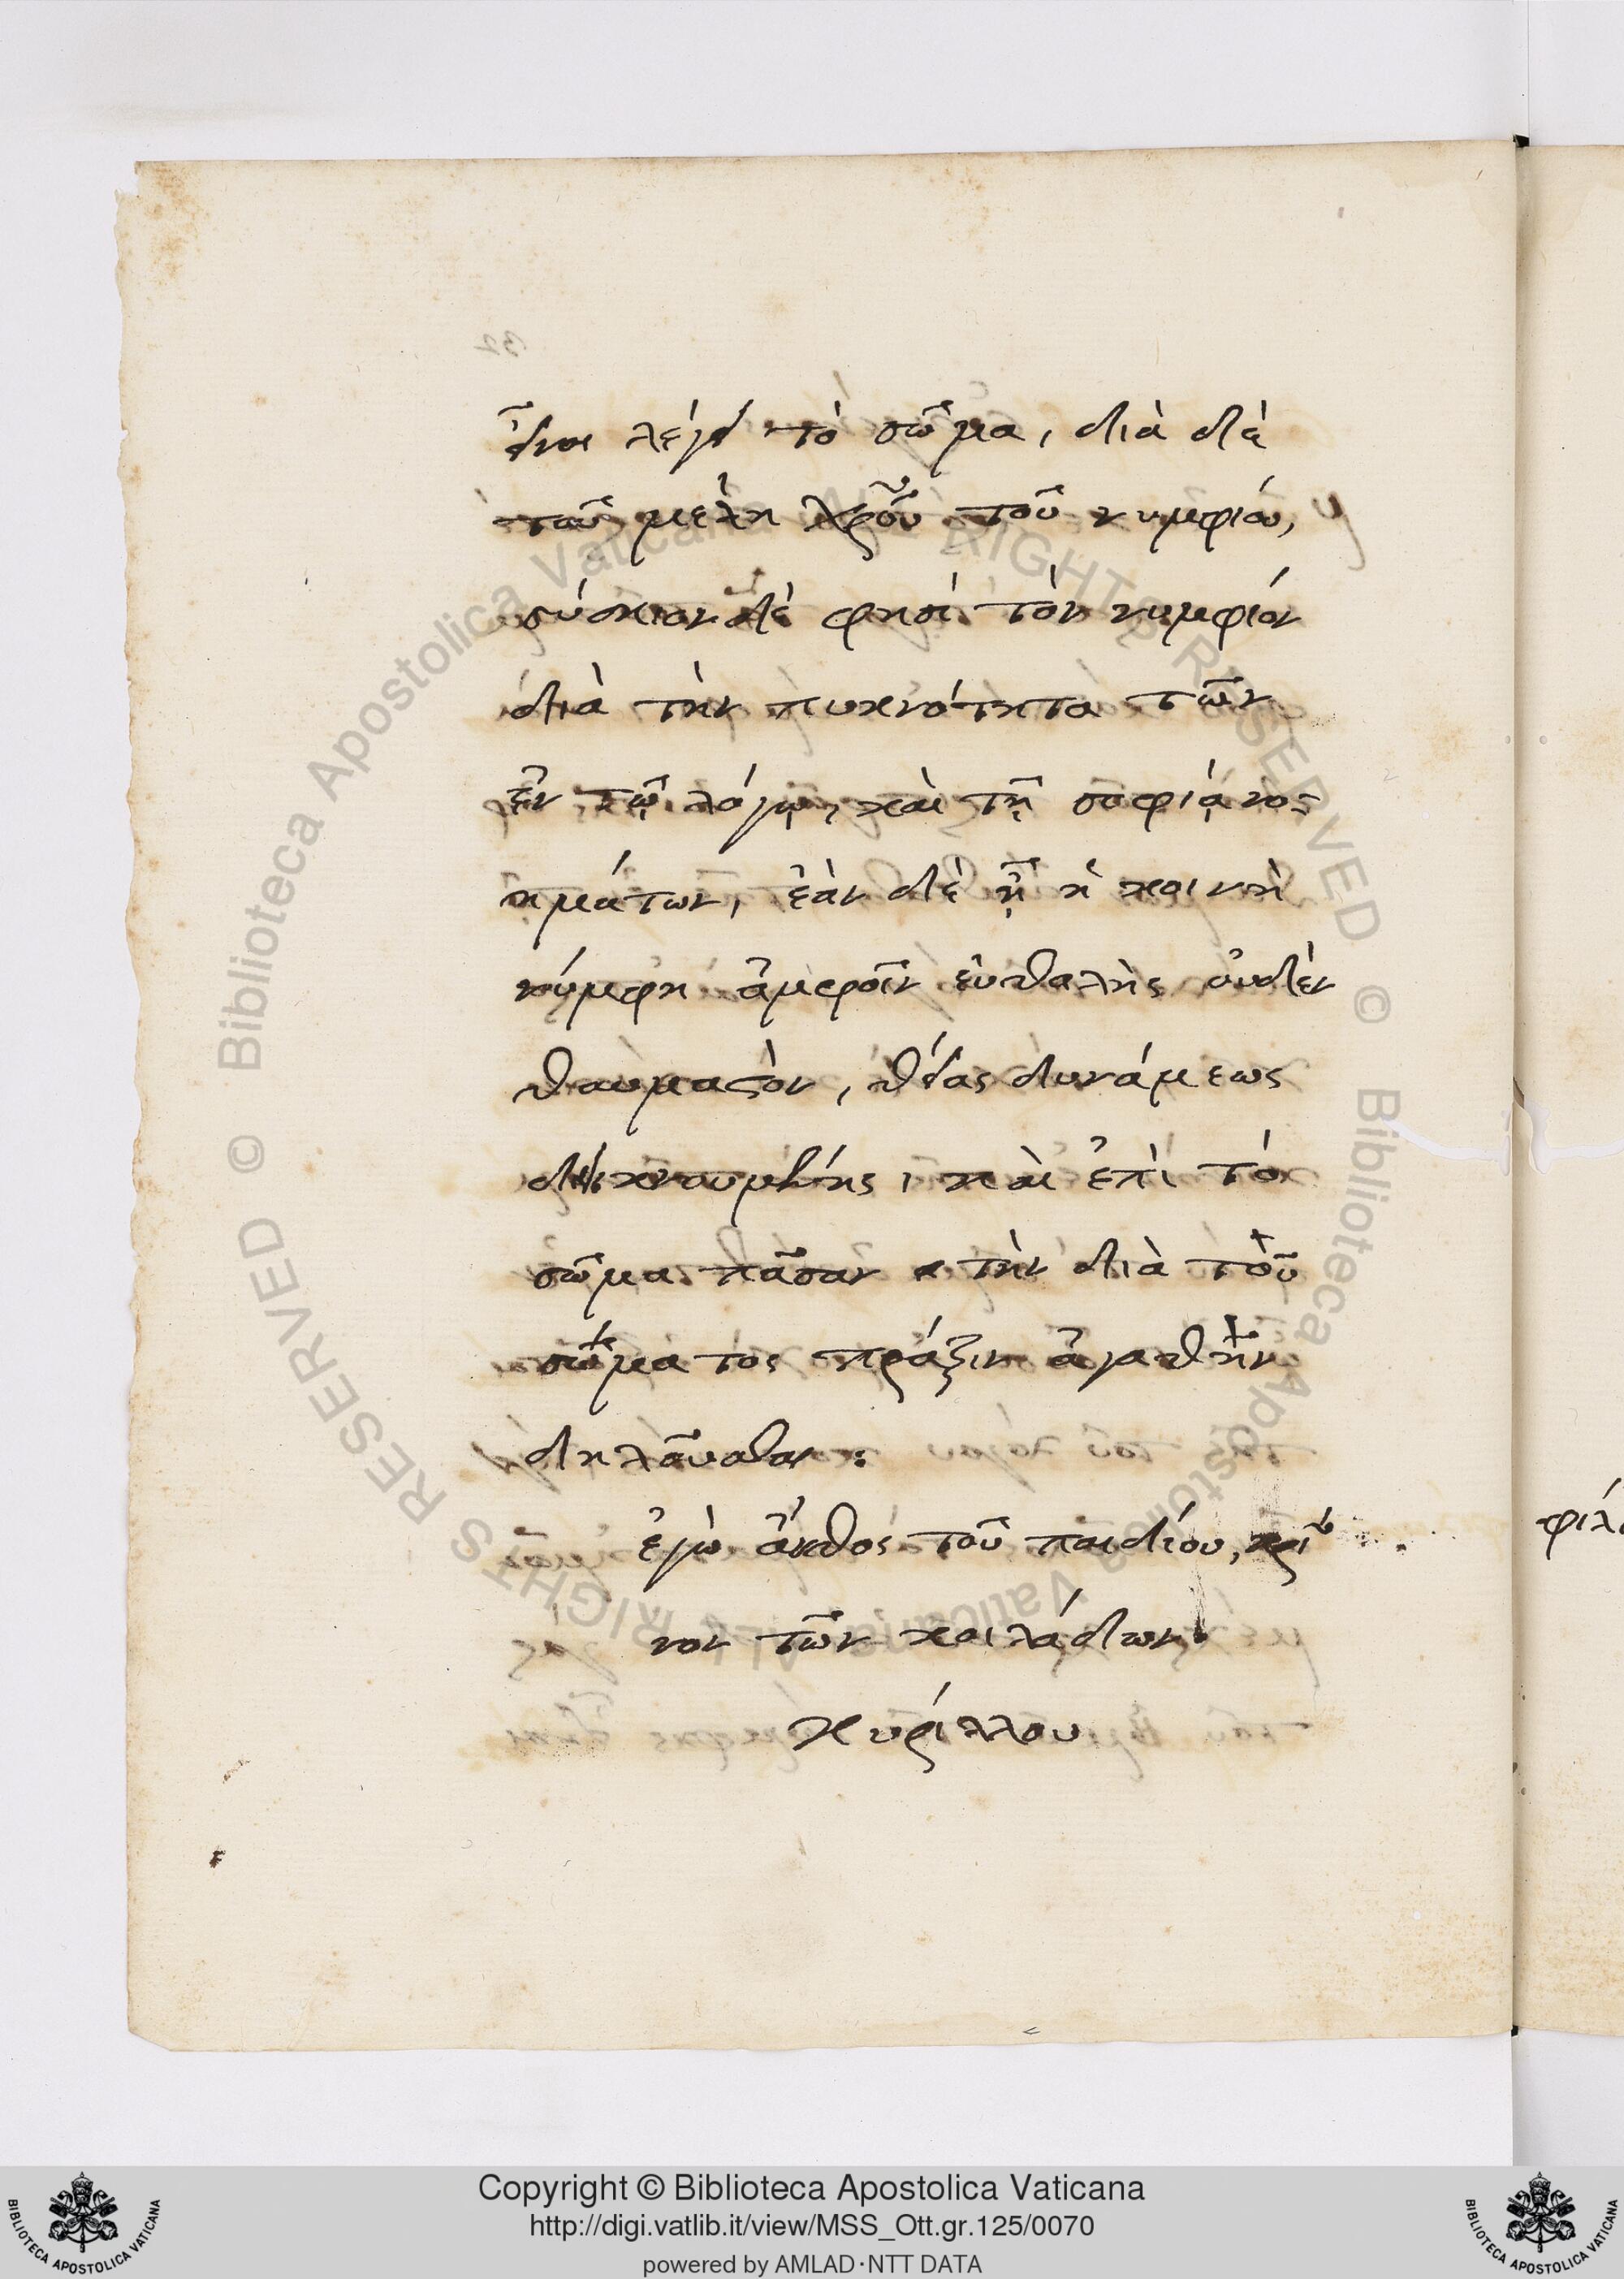 εἶναι λέγει τὸ σῶμα, διὰ δὲ
τοῦ μελὴ χροῦ τοῦ νυμφίου,
σύσκιον δέ φησι τὸν νυμφίον
διὰ τὴν πυκνότητα τῶν
ἐν τῷ λόγῳ, καὶ τῇ σοφίᾳ νο
ημάτων, ἐὰν δὲ ᾖ ἡ κοινὴ
νύμφη ἀμφοῖν εὐθαλὴς οὐδὲν
θαυμαστὸν, θείας δυνάμεως
διικνουμένης, καὶ ἐπὶ τὸ
σῶμα πᾶσαν τὴν διὰ τοῦ
σώματος πρᾶξιν ἀγαθὴν
δηλοῦσθαι:
ἐγὼ ἄνθος τοῦ παιδίου, κρί
νον τῶν κοιλάδων.
Κυρίλλου
φίλ
Copyright © Biblioteca Apostolica Vaticana
http://digi.vatlib.it/view/MSS_Ott.gr.125/0070
powered by AMLAD·NTT DATA
BIBLIOTECA APOSTOLICA VATICANA
BIBLIOTECA APOSTOLICA VATICANA
© Biblioteca Apostolica Vaticana ALL RIGHTS RESERVED © Biblioteca Apostolica Vaticana ALL RIGHTS RESERVED